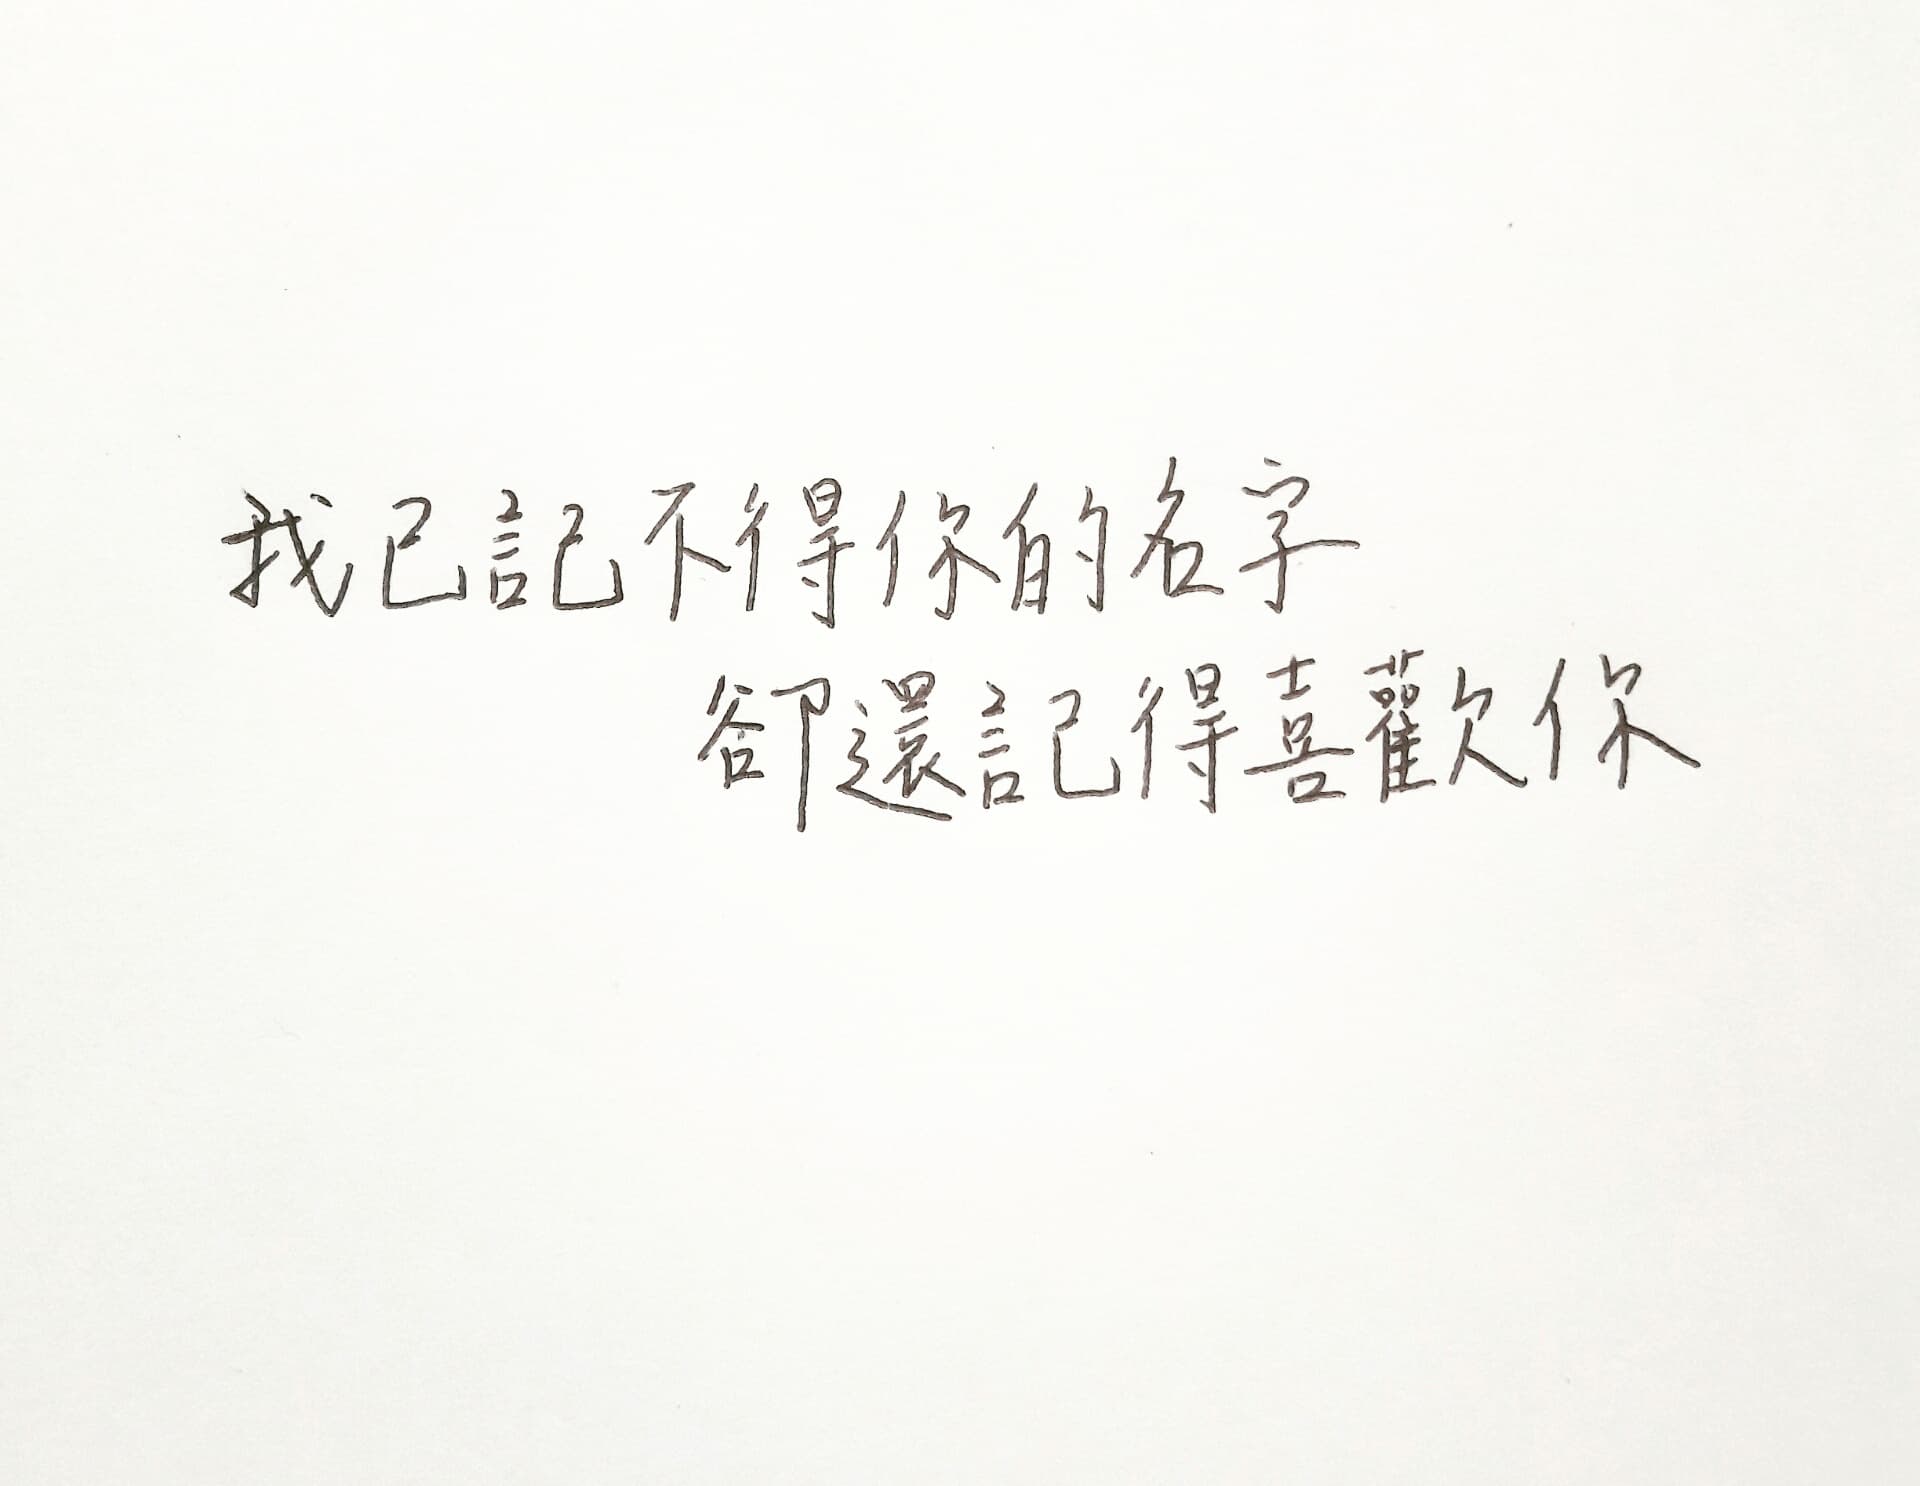 我已記不得你的名字
卻還記得喜歡你